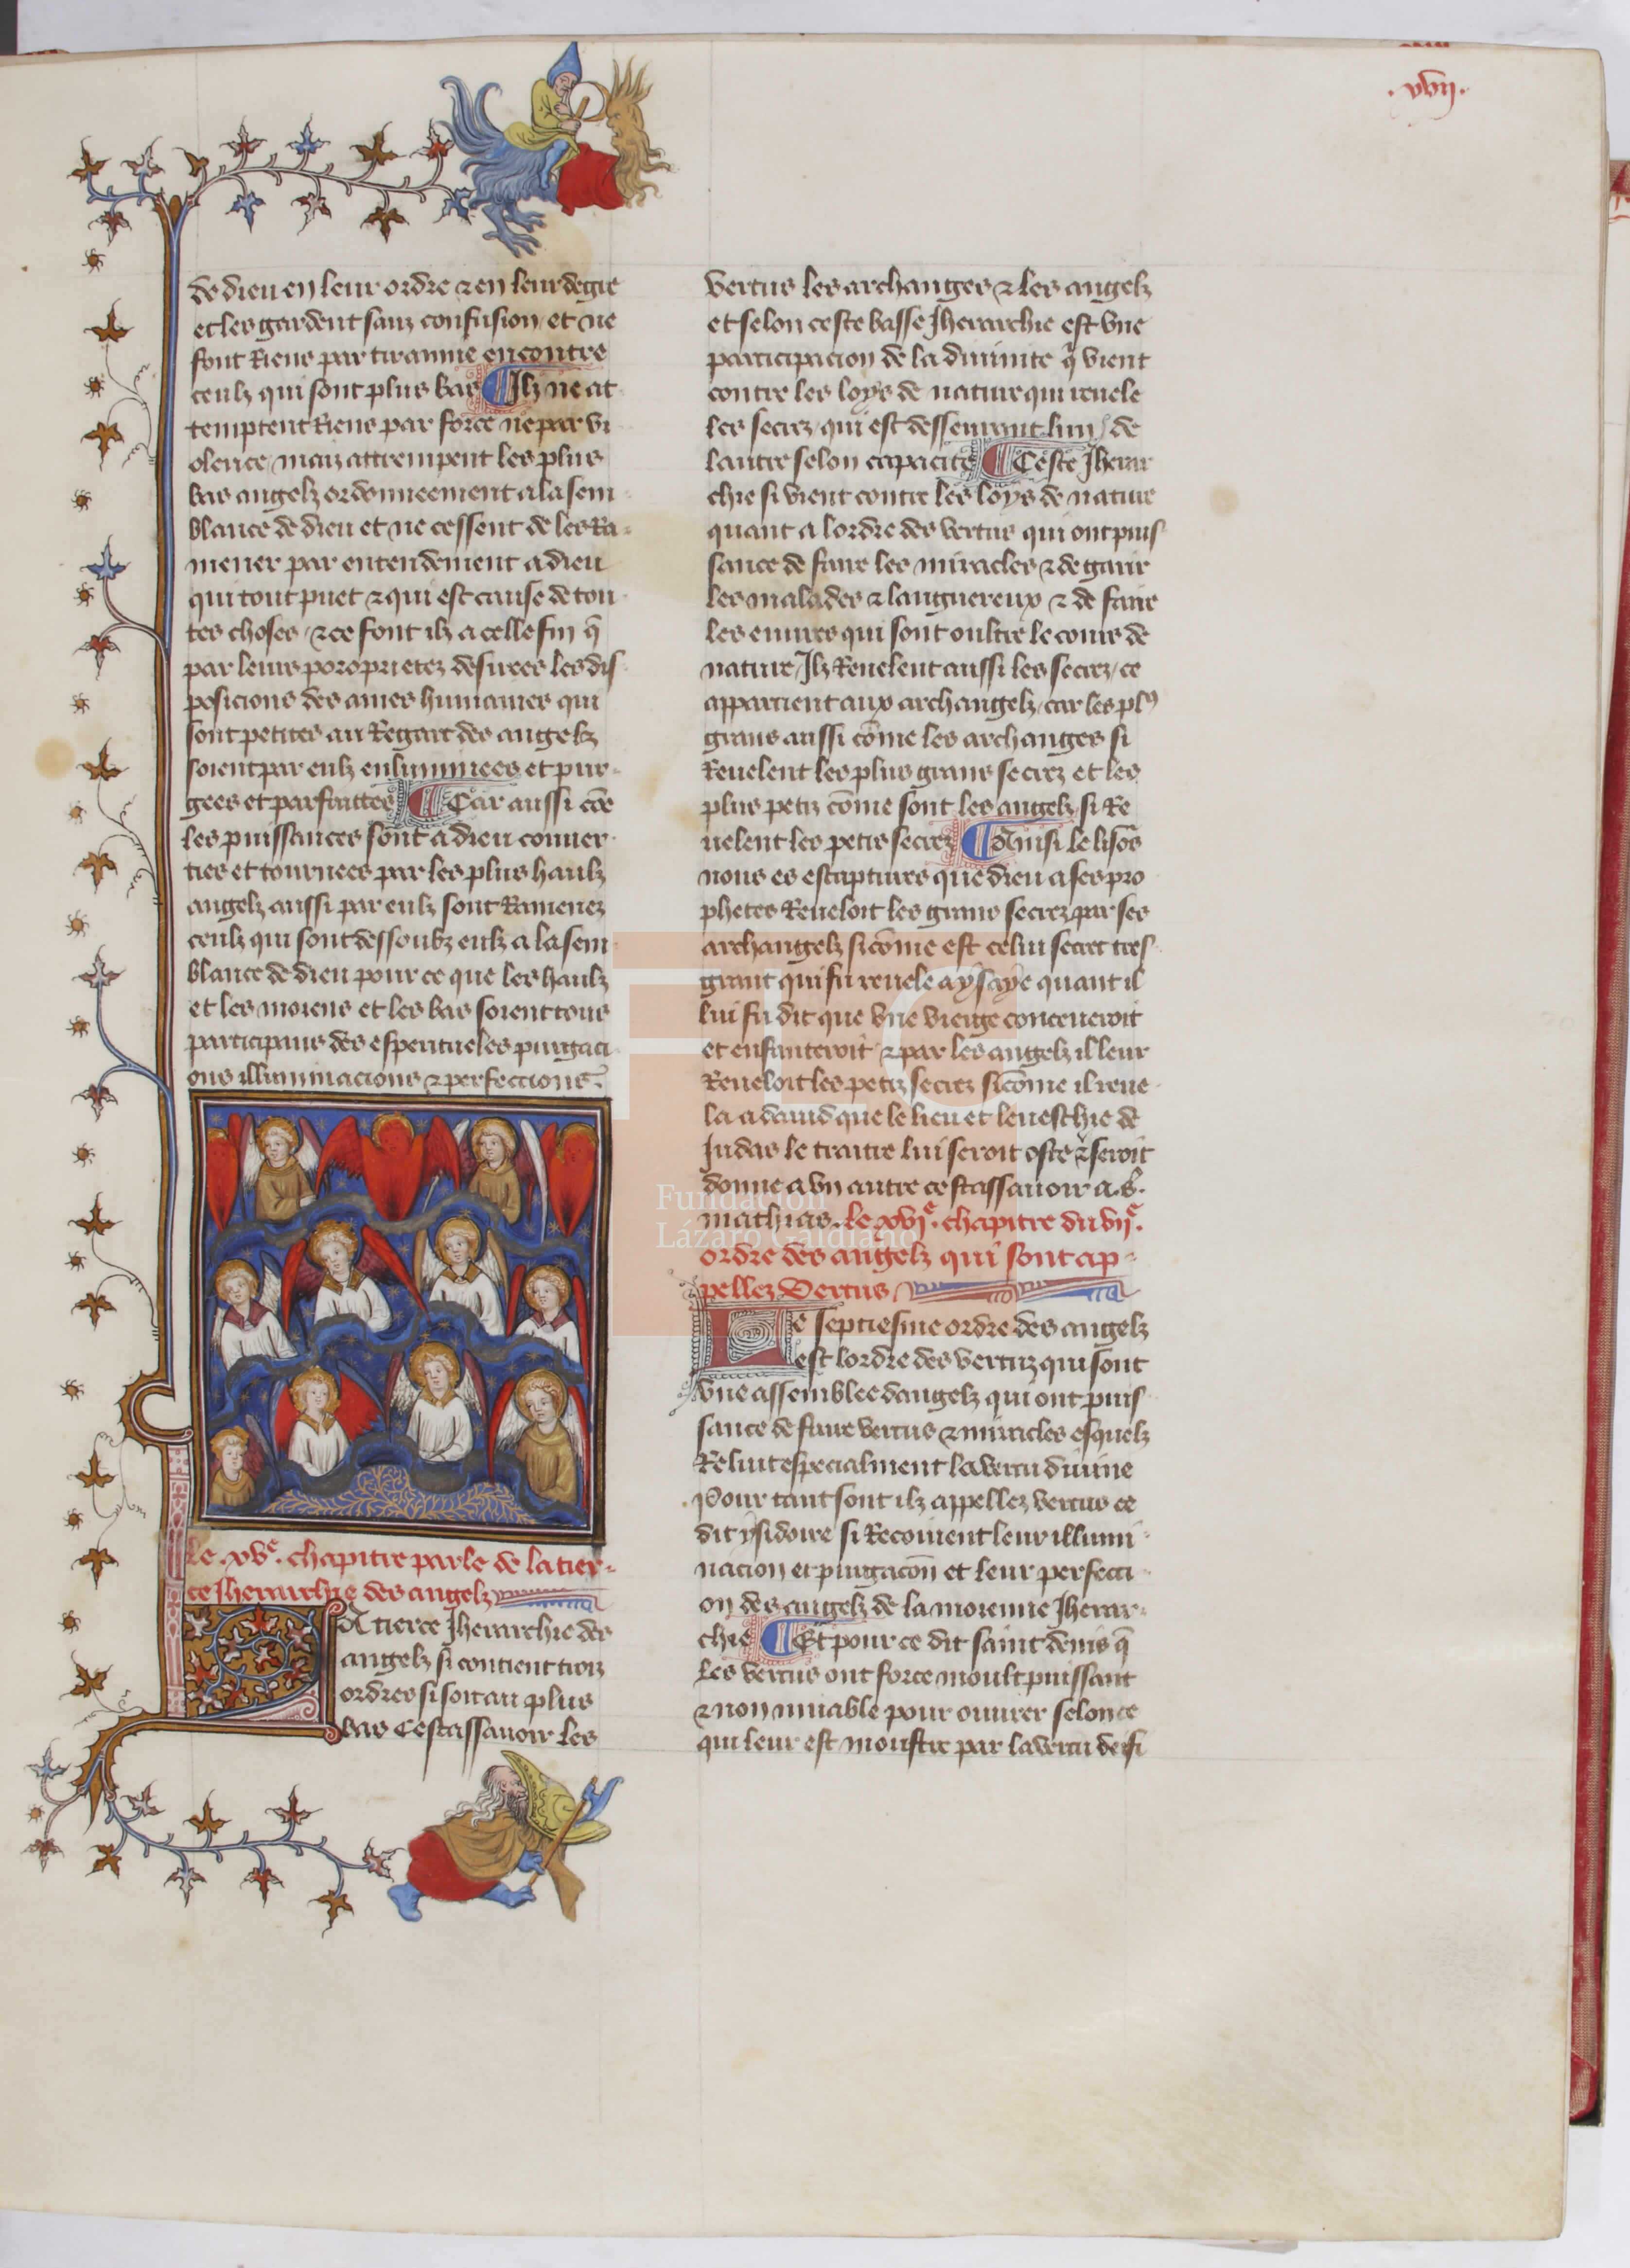 .xvii.
de dieu en leur ordre ⁊ en leur degre
et les gardent sanz confusion et ne
font Riens par tirannie encontre
ceulz qui sont plus bas Ilz ne at
temptent Riens par force ne par vi
olence, maiz attrempent les plus
bas angelz ordonneement a la sem
blance de dieu et ne cessent de les Ra-
mener par entendement a dieu
qui tout puet ⁊ qui est cause de tou
tes choses, ⁊ ce font ilz a celle fin q̃
par leurs poroprietez desirees les dis
posicions des ames humaines qui
sont petites au Regart des angelz
soient par eulz enluminees et pur-
gees et parfaittes Car aussi cõe
les puissances sont a dieu conuer-
ties et tournees par les plus haulz
angelz aussi par eulz sont Ramenez
ceulz qui sont dessoubz eulz a la sem
blance de dieu pour ce que les haulz
et les moiens et les bas soient tous
participans des esperitueles purgaci
ons illuminacions ⁊ perfections.
le .xvᵉ. chapitre parle de la tier-
ce Iherarchie des angelz
LA tierce Iherarchie des
angelz si contient trois
ordres si soit au plus
bas Cestassauoir les
vertus les archanges ⁊ les angelz
et selon ceste basse Iherarchie est vne
participacion de la diuinite q̃ vient
contre les loys de nature qui reuele
les secrez, qui est desseurant lun de
lautre selon capacite Ceste Iherar
chie si vient contre les loys de nature
quant a lordre des vertus qui ont puis
sance de faire les miracles ⁊ de garir
les malades ⁊ languereux ⁊ de faire
les euures qui sont oultre le cours de
nature, Ilz Reuelent aussi les secrez, ce
appartient aux archangelz, car les plꝰ
grans aussi cõme les archanges si
Reuelent les plus grans secrez et les
plus petiz cõme sont les angelz si Re
uelent les petis secrez Ainsi le lisõs
nous es escaptures que dieu a ses pro
phetes Reueloit les grans secrez par ses
archangelz si cõme est celui secret tres
grant qui fu reuele a ysaye quant il
lui fu dit que vne vierge conceueroit
et enfanteroit ⁊ par les angelz il leur
Reueloit les petiz secrez si cõme il reue-
la a dauid que le lieu et leueschie de
Iudas le traitre lui seroit oste ⁊ seroit
donne a vn autre cestassauoir a .s.
mathias. le .xviᵉ. chapitre du viiᵉ.
ordre des angelz qui sont ap-
pellez Vertus
LE septiesme ordre des angelz
est lordre des vertuz qui sont
vne assemblee dangelz qui ont puis
sance de faire vertus ⁊ miracles esquelz
Reluit especialment la vertu diuine
Pour tant sont ilz appellez vertus ce
dit ysidoire si Recoiuent leur illumi-
nacion et purgacõn et leur perfecti-
on des angelz de la moienne Iherar-
chie Et pour ce dit saint denis q̃
les vertus ont force moult puissant
⁊ non muable pour ouurer selon ce
qui leur est monstre par la vertu deifi
Fundación
Lázaro Galdiano